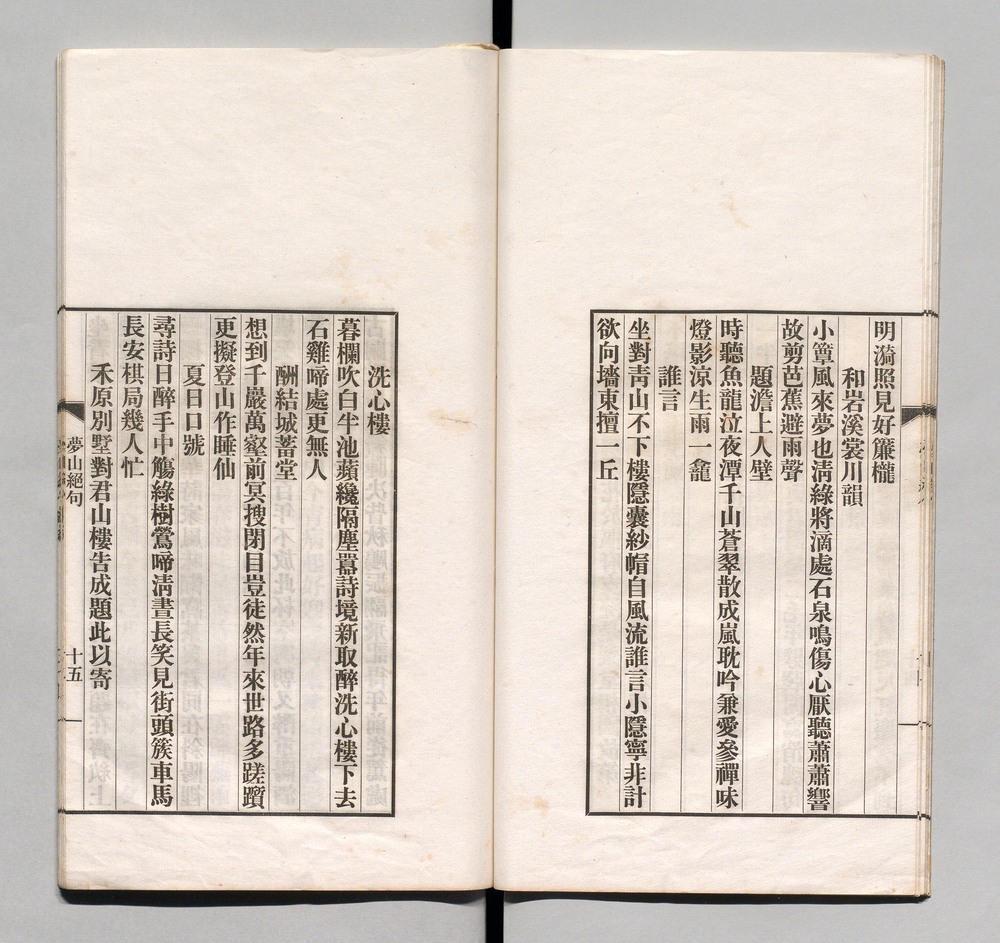 明漪照見好簾櫳
和岩溪裳川韻
小簟風來夢也淸綠將滴處石泉鳴傷心厭聽蕭蕭響
故剪芭蕉避雨聲
題澹上人壁
時聽魚龍泣夜潭千山蒼翠散成嵐耽吟兼愛參禪味
燈影涼生雨一龕
誰言
坐對靑山不下樓隱囊紗帽自風流誰言小隱寧非計
欲向墻東擅一丘
洗心樓
暮欄吹白半池蘋纔隔塵囂詩境新取醉洗心樓下去
石雞啼處更無人
酬結城蓄堂
想到千巖萬壑前冥搜閉目豈徒然年來世路多蹉躓
更擬登山作睡仙
夏日口號
尋詩日醉手中觴綠樹鶯啼淸晝長笑見街頭簇車馬
長安棋局幾人忙
禾原別墅對君山樓告成題此以寄
夢山絕句
十五